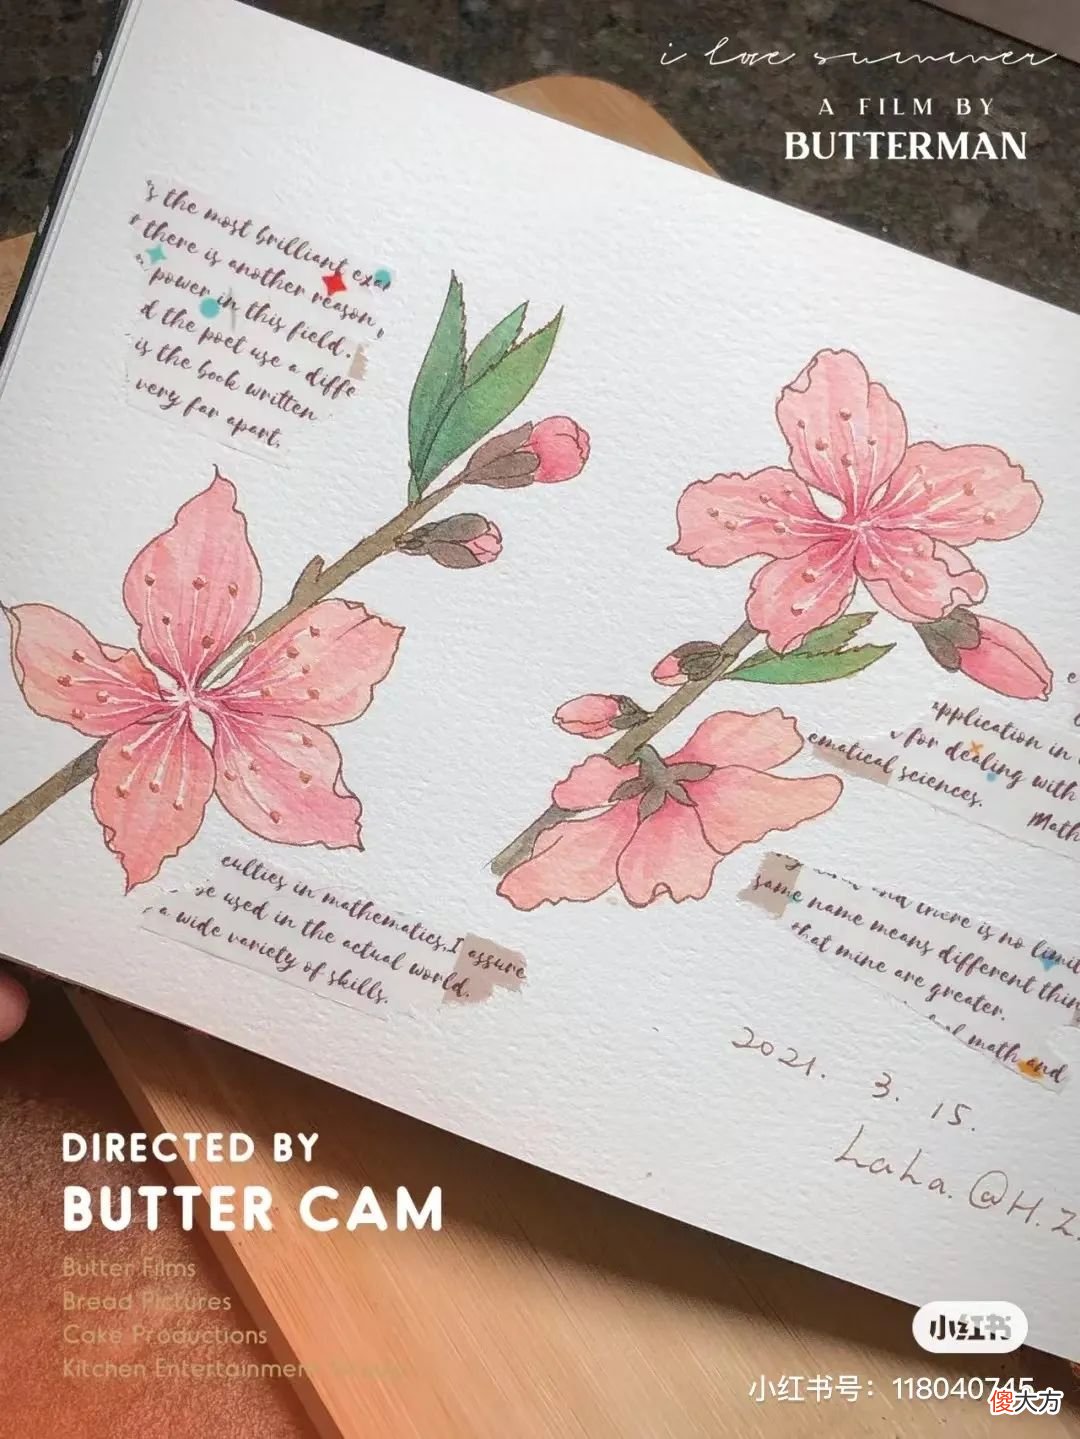 i love summer
A FILM BY
BUTTERMAN
the most brilliant
there is another reason
power in this field.
d the poet use a diffe
is the book written
very far apart.
application in
for dealing with
ematical sciences.
Math
culties in mathematics, I assure
be used in the actual world.
a wide variety of skills.
and there is no limit
same name means different thin
that mine are greater.
math and
2021. 3. 15.
LaLa. @H.Z.
DIRECTED BY
BUTTER CAM
Butter Films
Bread Pictures
Cake Productions
Kitchen Entertainment
小红书
小红书号：118040745
傻大方